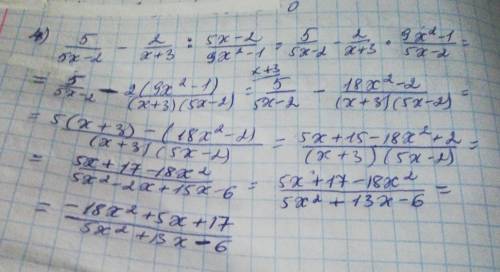 4) 5/(5x-2) - 2/(x+3) : (5x-2)/(9x²-1) = 5/(5x-2) - 2/(x+3) · (9x²-1)/(5x-2) =
= 5/(5x-2) - 2(9x²-1)/((x+3)(5x-2)) = x+3 5/(5x-2) - (18x²-2)/((x+3)(5x-2)) =
= (5(x+3) - (18x²-2))/((x+3)(5x-2)) = (5x+15-18x²+2)/((x+3)(5x-2)) =
= (5x+17-18x²)/(5x²-2x+15x-6) = (5x+17-18x²)/(5x²+13x-6) =
= (-18x²+5x+17)/(5x²+13x-6)